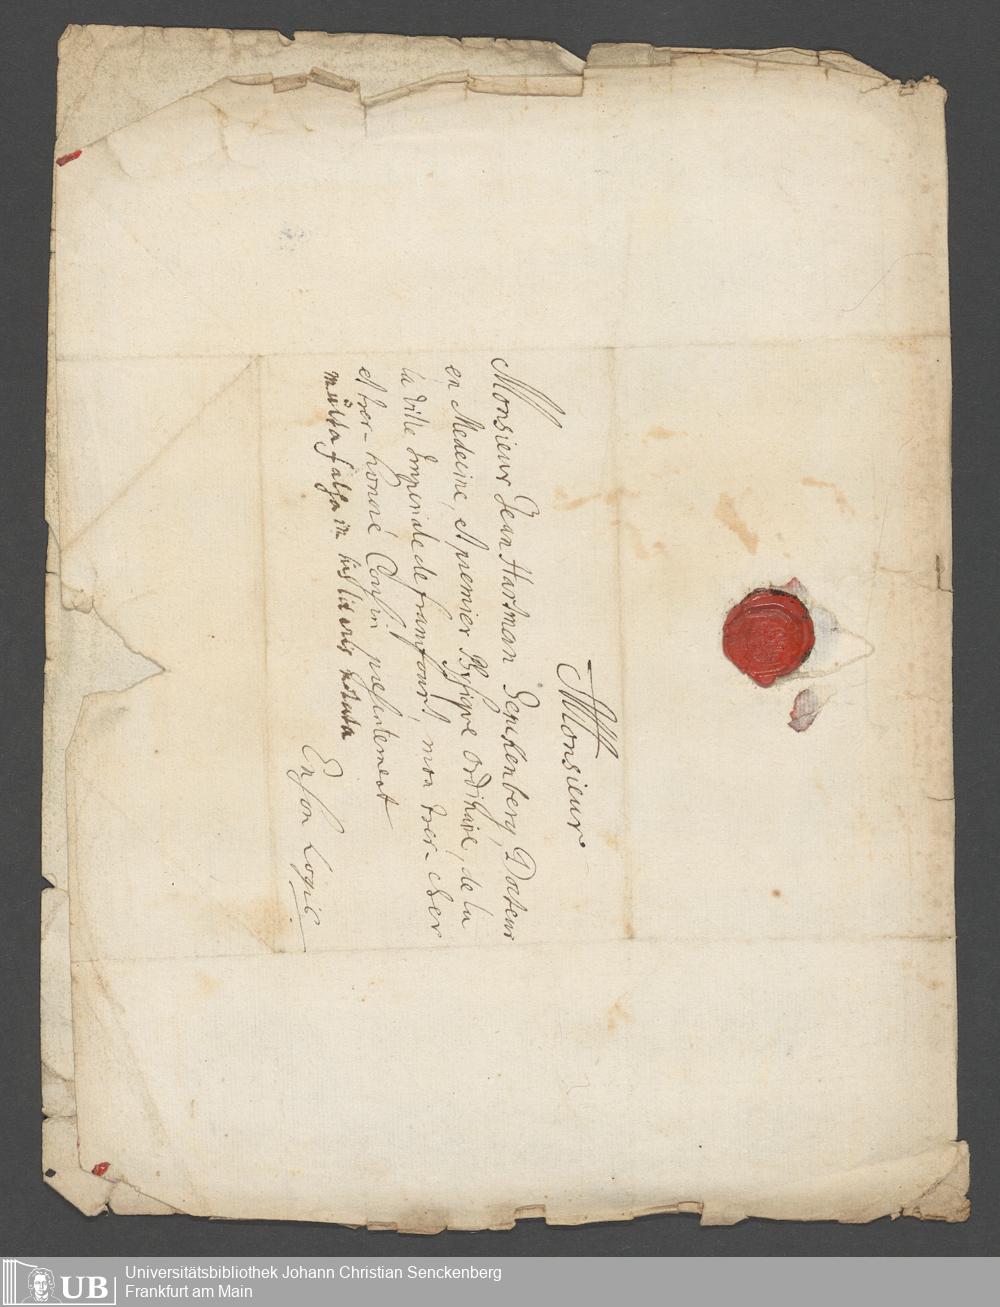 Monsieur
Monsieur Jean Hartman Senckenberg, Docteur
en Medecine, et premier Physique ordinaire, de la
la Ville Imperiale de francfourt, mon tres-cher
et tres-honoré Cousin presentement
multa falsa in his literis notata
En son Logis.
UB
Universitätsbibliothek Johann Christian Senckenberg
Frankfurt am Main